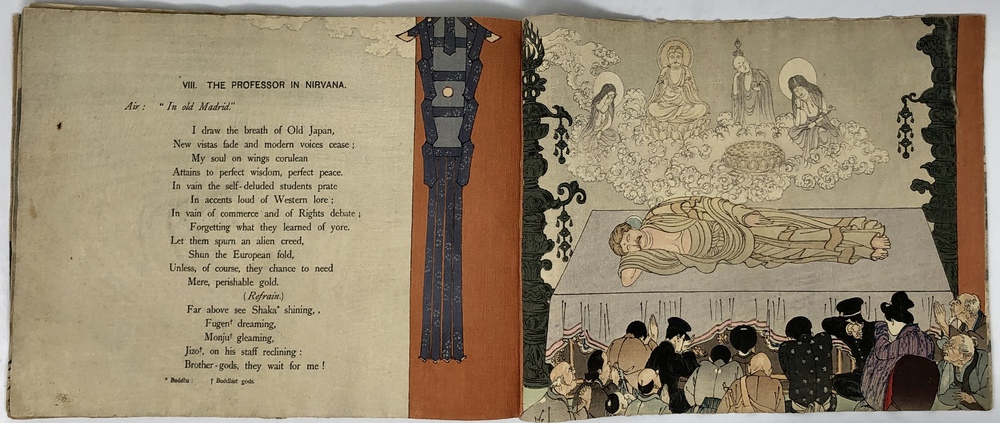 VIII. THE PROFESSOR IN NIRVANA.
Air: "In old Madrid."
I draw the breath of Old Japan,
New vistas fade and modern voices cease;
My soul on wings corulean
Attains to perfect wisdom, perfect peace.
In vain the self-deluded students prate
In accents loud of Western lore;
In vain of commerce and of Rights debate;
Forgetting what they learned of yore.
Let them spurn an alien creed,
Shun the European fold,
Unless, of course, they chance to need
Mere, perishable gold.
(Refrain.)
Far above see Shaka* shining,
Fugen† dreaming,
Monju† gleaming,
Jizo†, on his staff reclining:
Brother-gods, they wait for me!
* Buddha: † Buddhist gods.